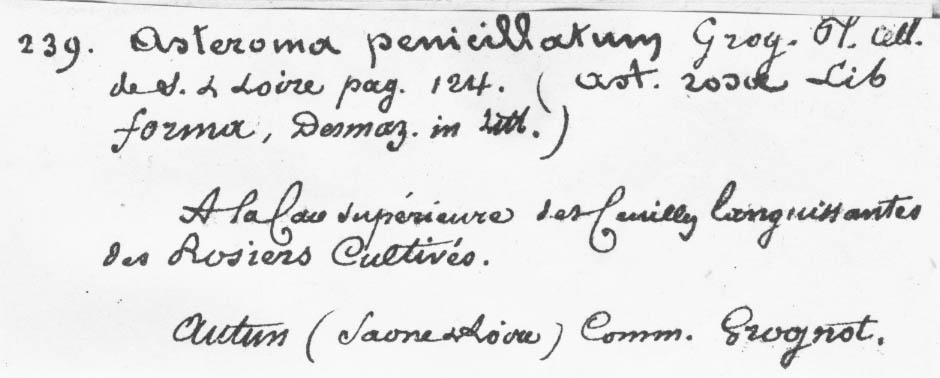 239. Asteroma penicillatum Grog. Pl. cell.
de S. & Loire pag. 124. ( Ast. rosæ Lib
forma, Desmaz. in Litt.)
A la face supérieure des feuilles languissantes
des Rosiers Cultivés.
Autun ( Saone & Loire ) Comm. Grognot.